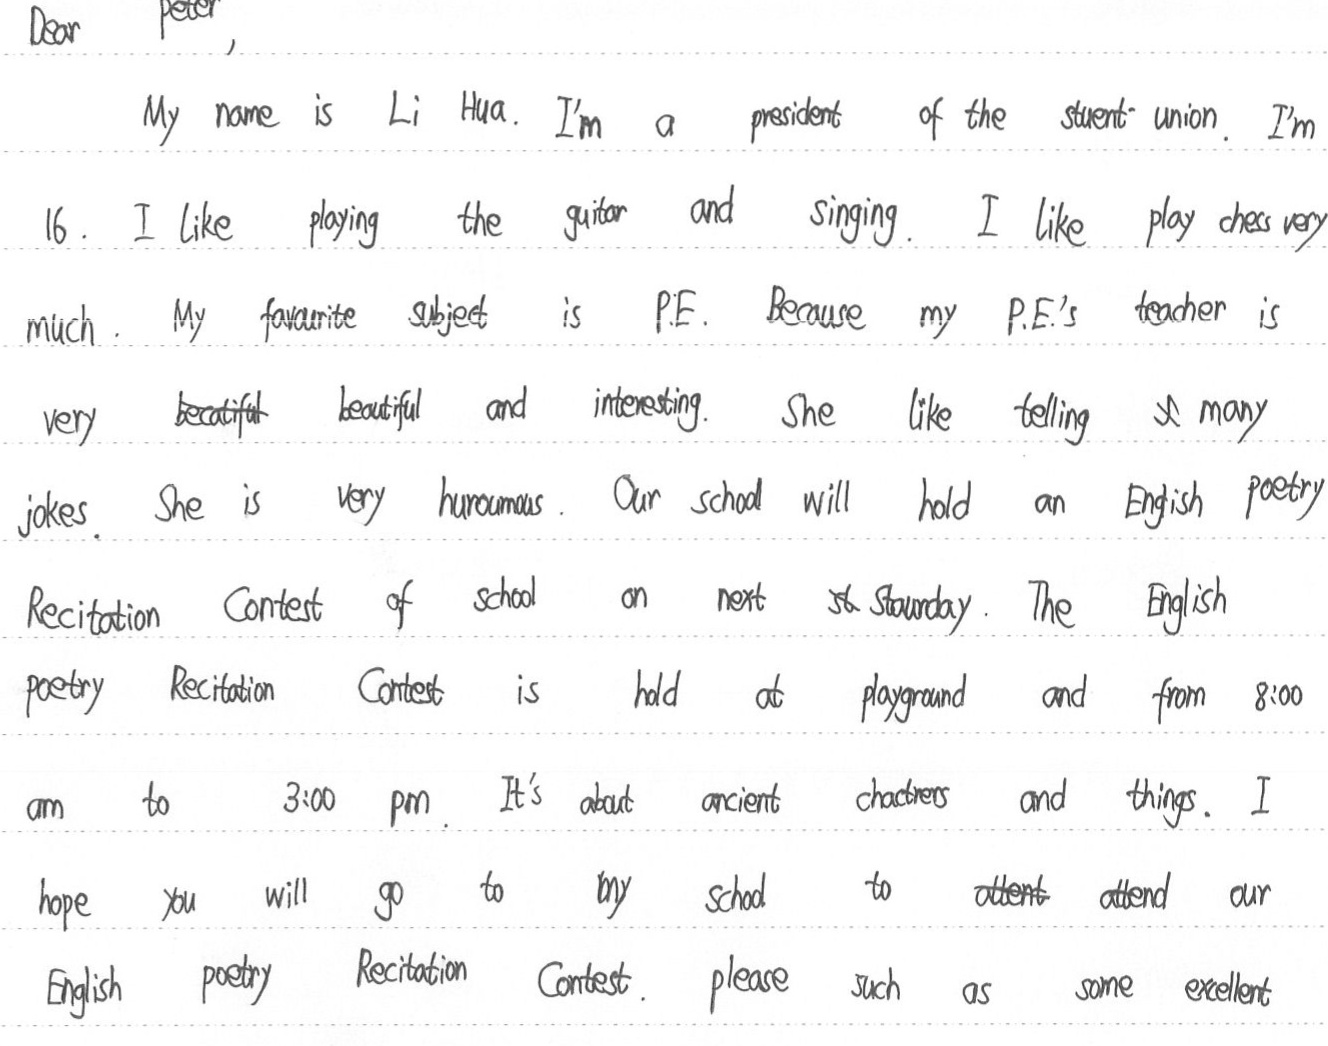 Dear Peter,
My name is Li Hua. I'm a president of the stuent union. I'm
16. I like playing the guitar and singing. I like play chess very
much. My favaurite subject is P.E. Because my P.E.'s teacher is
very becatiful beautiful and interesting. She like telling many
jokes. She is very huroumous. Our school will hold an English poetry
Recitation Contest of school on next st Staurday. The English
poetry Recitation Contest is hold at playground and from 8:00
am to 3:00 pm. It's about ancient chactrers and things. I
hope you will go to my school to attent attend our
English poetry Recitation Contest. please such as some excellent